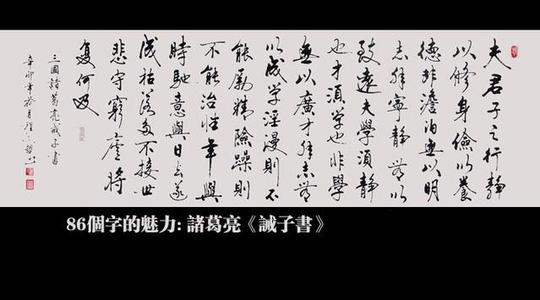 夫君子之行靜
以修身儉以養
德非澹泊無以明
志非寧靜無以
致遠夫學須靜
也才須學也非學
無以廣才非志無
以成學淫漫則不
能勵精險躁則
不能治性年與
時馳意與日去遂
成枯落多不接世
悲守窮廬將
復何及
三國諸葛亮戒子書
辛卯年
86個字的魅力: 諸葛亮《誡子書》